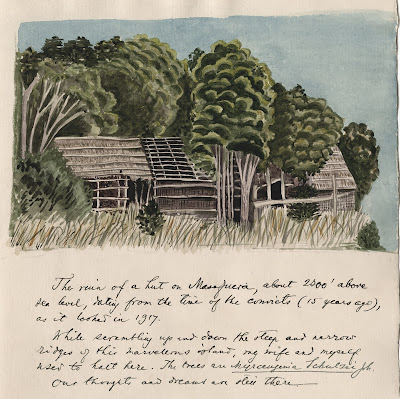 The ruin of a hut on Masafuera, about 2400' above
sea level, dating from the time of the convicts (15 years ago),
as it looked in 1917.
While scrambling up and down the steep and narrow
ridges of this marvellous island, my wife and myself
used to halt here. The trees are Myrceugenia Schulzei Jh.
Our thoughts and dreams are still there